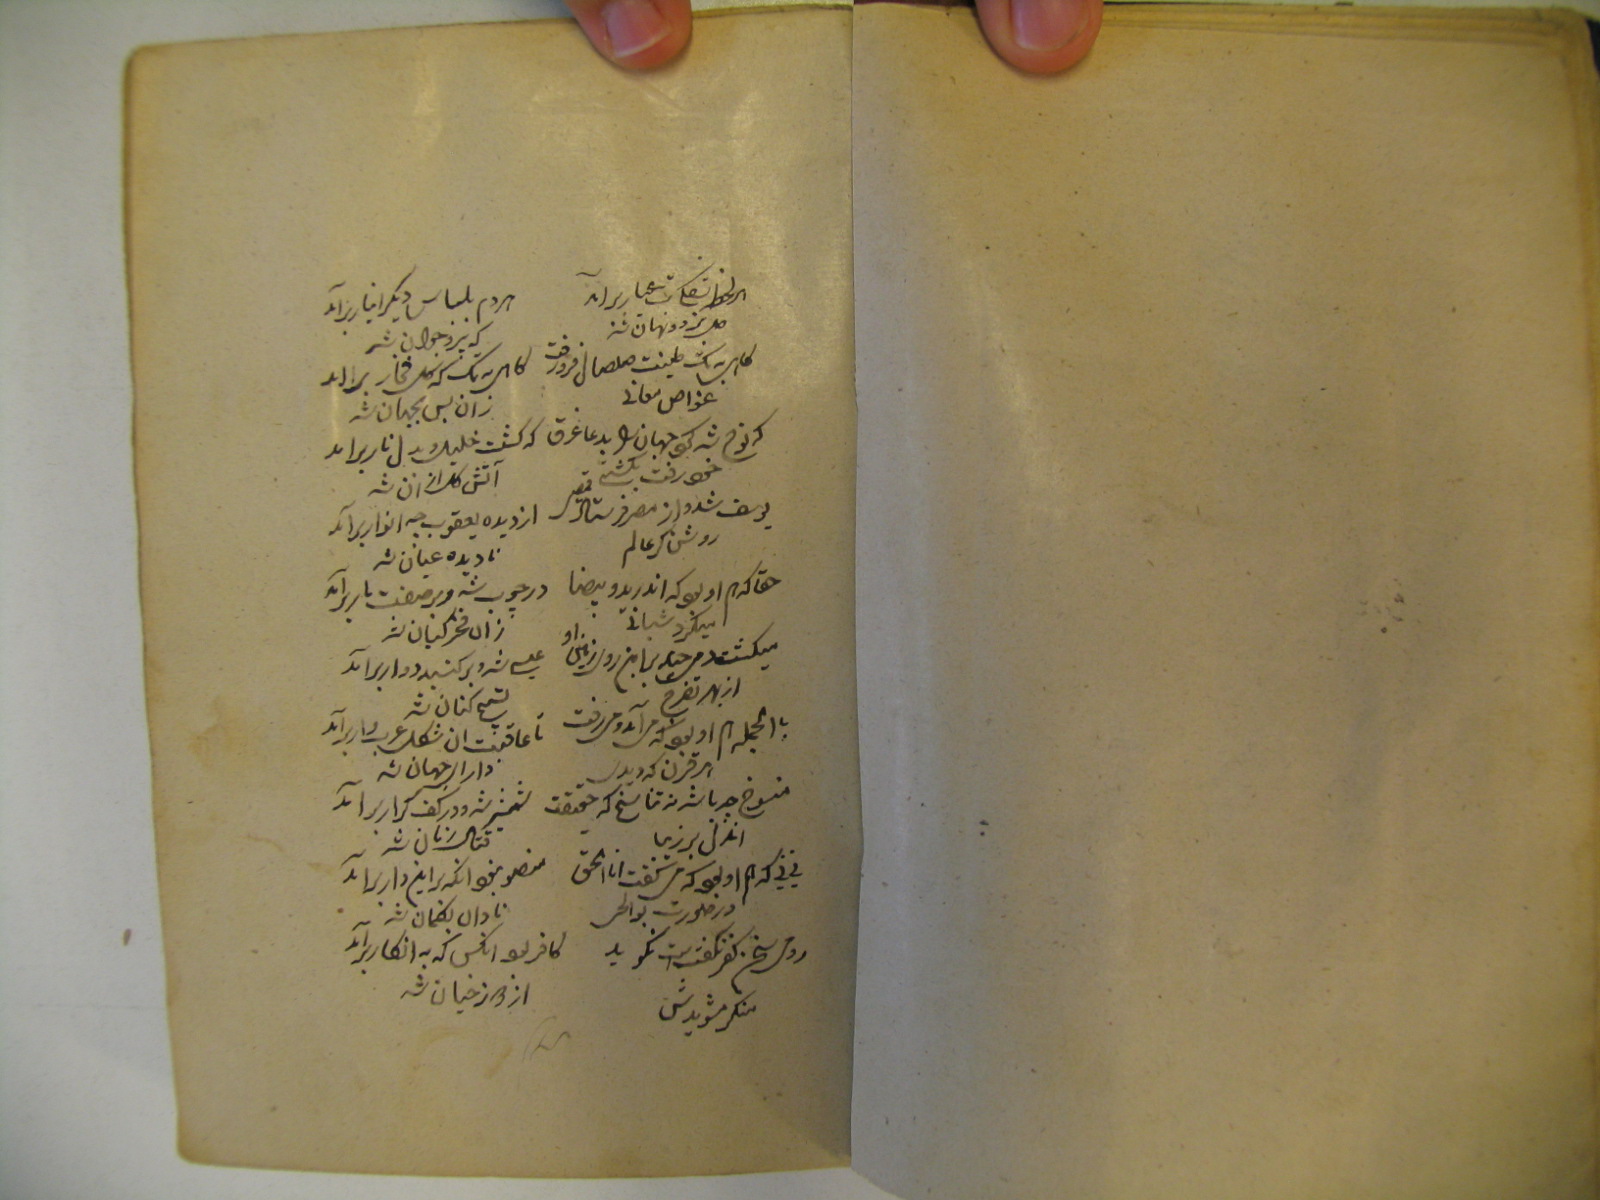 هر لحظه بشکل بت عیار برآمد
هردم بلباس دیگر انیار برآمد
دل برد و نهان شد
که پیر و جوان شد
گاهی به تک طینت صلصال فرو رفت
گاهی به تک کهگل فخار برآمد
غواص معانی
زان پس بجهان شد
که نوح شد کو جهان را بدعا غرق
که گشت خلیل و بدل نار برآمد
خود رفت بکشتی
آتش گل ازان شد
یوسف شد و از مصر فرستاد قمیص
از دیده یعقوب چه انوار برآمد
روشنگر عالم
نادیده عیان شد
حقا که هم او بود که اندر ید و بیضا
در چوب شد و بر صفت مار برآمد
میکرد شبانی
زان فخر کیان شد
میگشت دمی چند برین روی زمین او
عیسی شد و بر گنبد دوار برآمد
از بهر تفرج
تسبیح کنان شد
بالجمله هم او بود که می آمد و می رفت
تا عاقبت ان شکل عرب وار برآمد
هر قرن که دیدی
دارای جهان شد
منسوخ چه باشد نه تناسخ که حقیقت
شمشیر شد و در کف کرار برآمد
قتال زمان شد
نی نی که هم او بود که می گفت انا الحق
منصور نبود انکه بر این دار برآمد
در صورت بوالحی
نادان بگمان شد
رومی سخن کفر نگفتست نگوید
کافر بود انکس که به انکار برآمد
منکر مشویدش
از دوزخیان شد